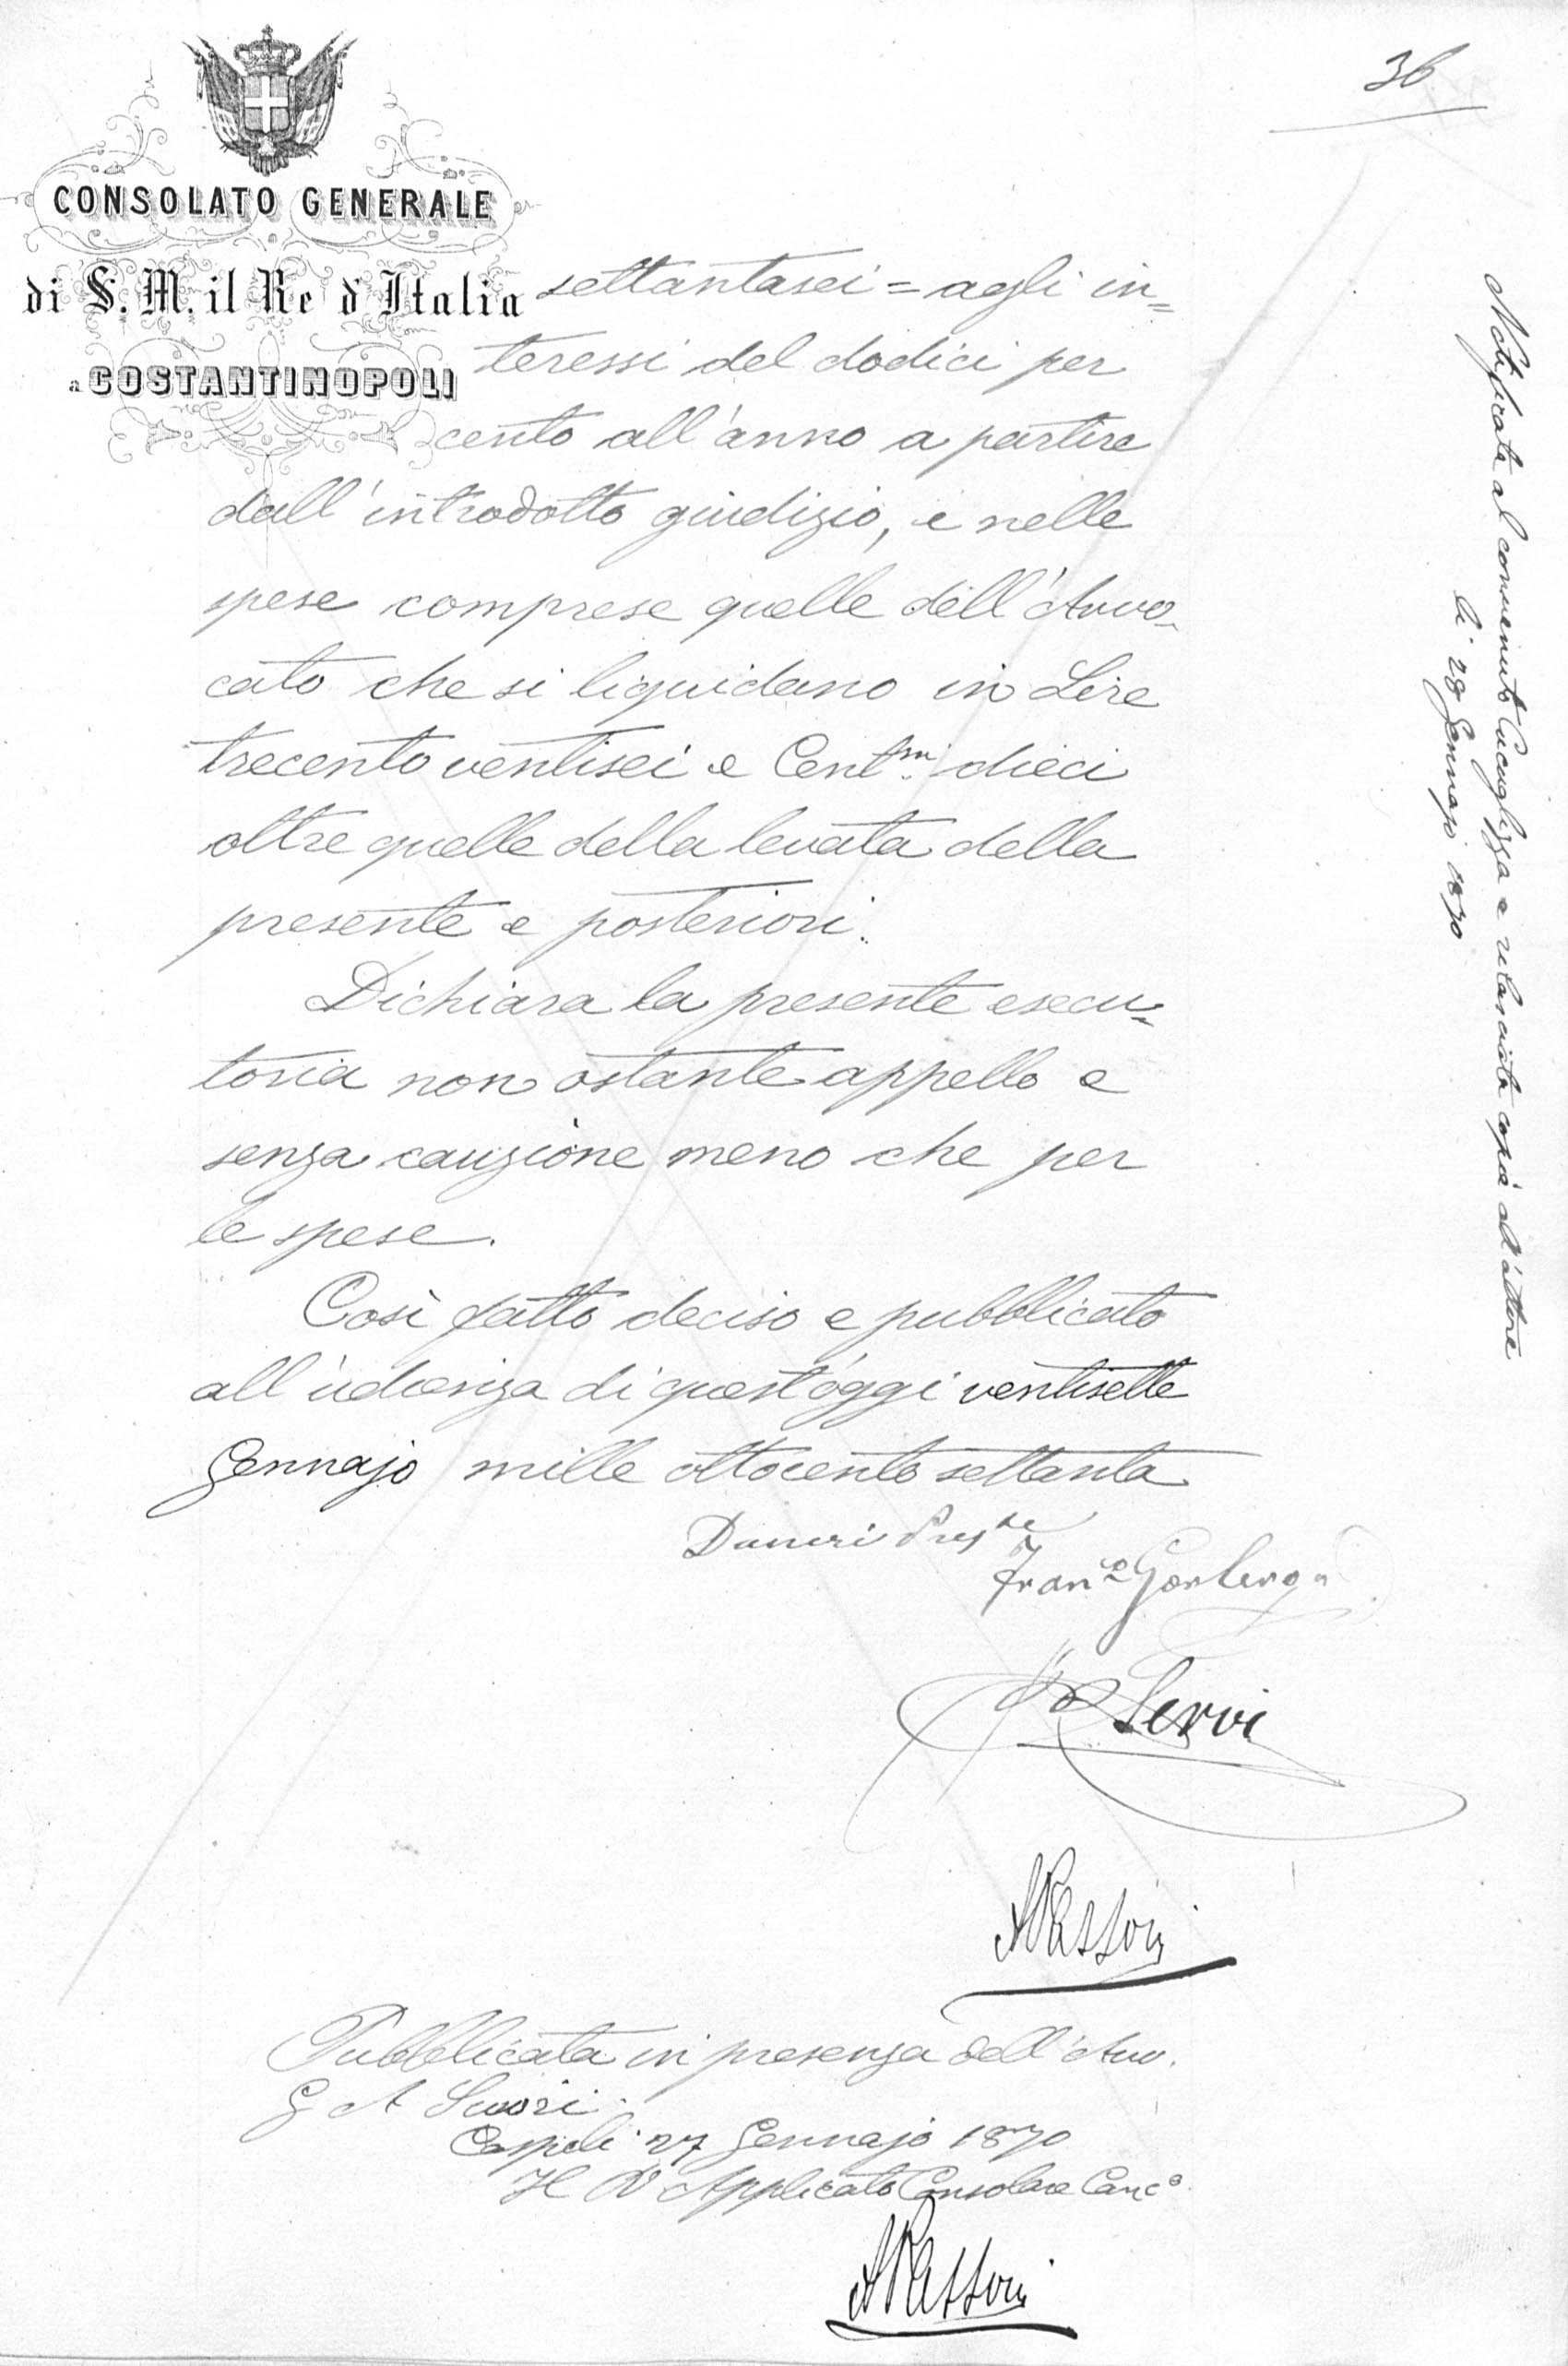 36
CONSOLATO GENERALE
di S. M. il Re d'Italia
a COSTANTINOPOLI
settantasei = agli in=
teressi del dodici per
cento all'anno a partire
dall'introdotto giudizio, e nelle
spese comprese quelle dell'Avvo-
cato che si liquidano in Lire
trecento ventisei e Centmi dieci
oltre quelle della levata della
presente e posteriori.
Dichiara la presente esecu=
toria non ostante appello e
senza cauzione meno che per
le spese.
Così fatto deciso e pubblicato
all'udienza di quest'oggi ventisette
Gennajo mille ottocento settanta
Preste
Franco
Servi
Pubblicata in presenza dell'Avv.
G A
Cospoli 27 Gennajo 1870
Il Ro Applicato Consolare Canco
Notificata al convenuto e rilasciata copia all'attore
li 28 Gennajo 1870